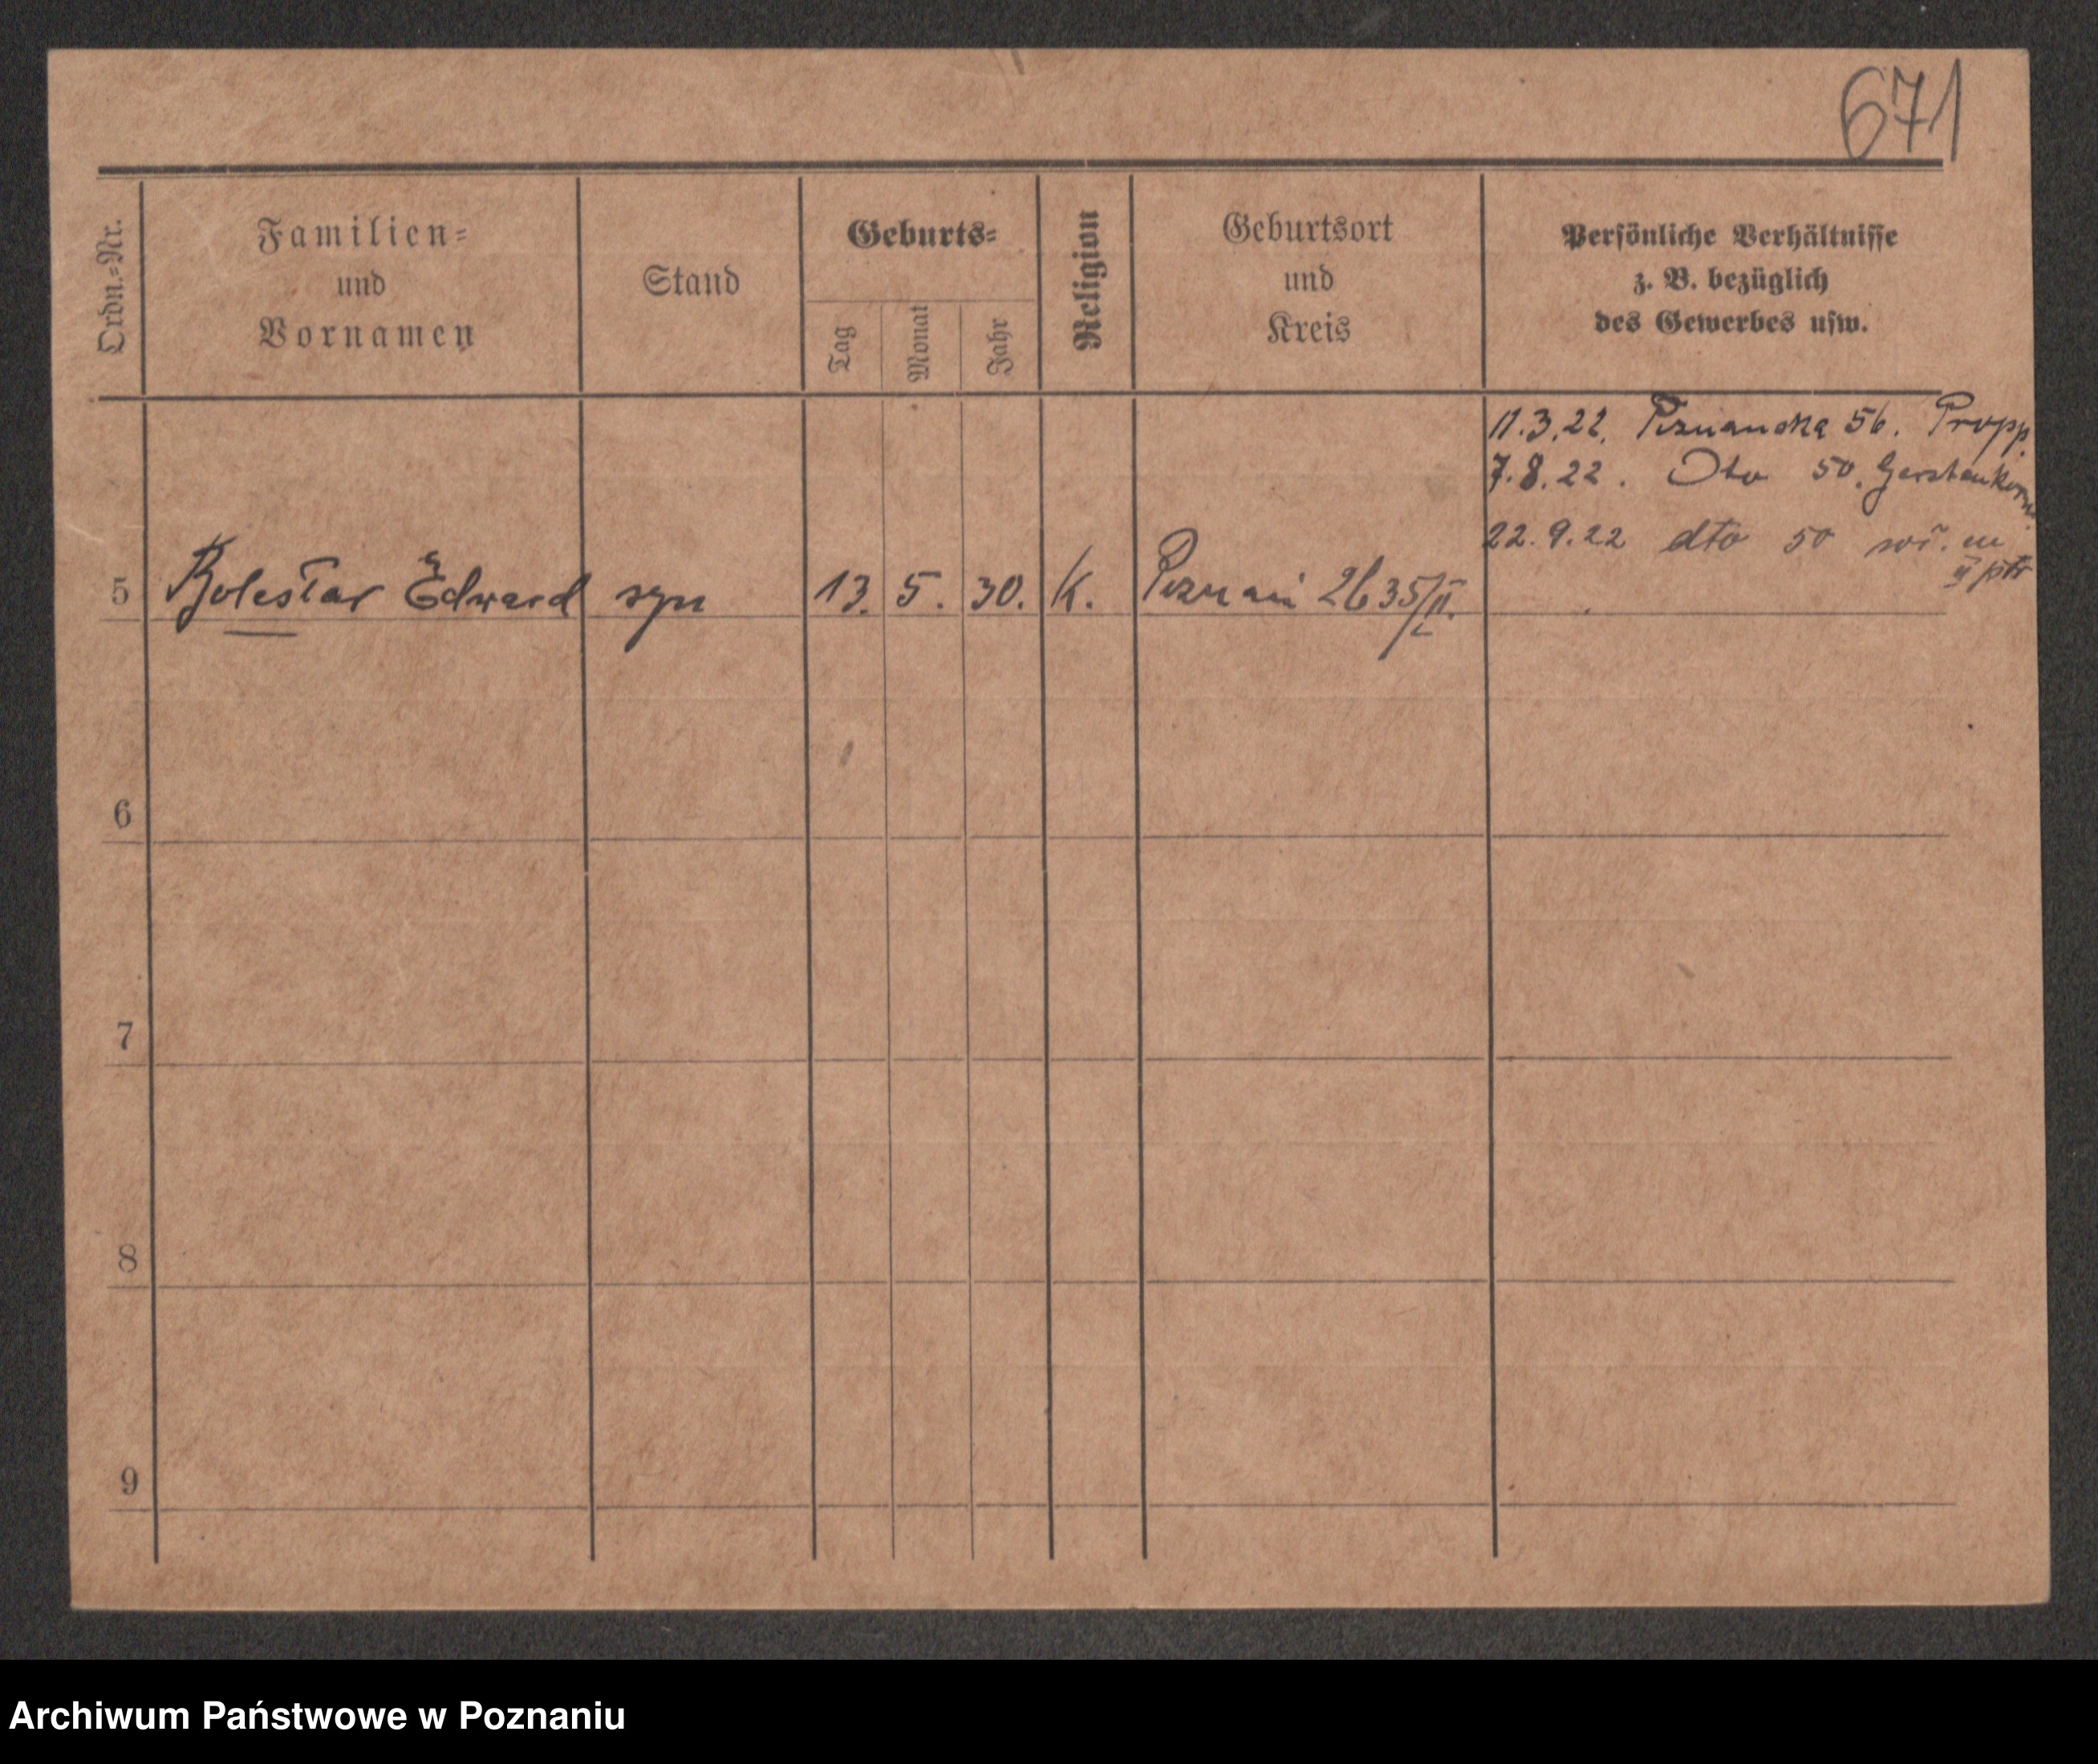 671
Ordn.-Nr.
Familien-
und
Vornamen
Stand
Geburts-
Tag
Monat
Jahr
Religion
Geburtsort
und
Kreis
Persönliche Verhältnisse
z. B. bezüglich
des Gewerbes usw.
11.3.22. Poznańska 56. Propp.
7.8.22. Dto 50. Gerstenkorn
22.9.22 dto 50
II ptr
5 Edward syn 13. 5. 30. K. Poznań 2635/II.
6
7
8
9
Archiwum Państwowe w Poznaniu